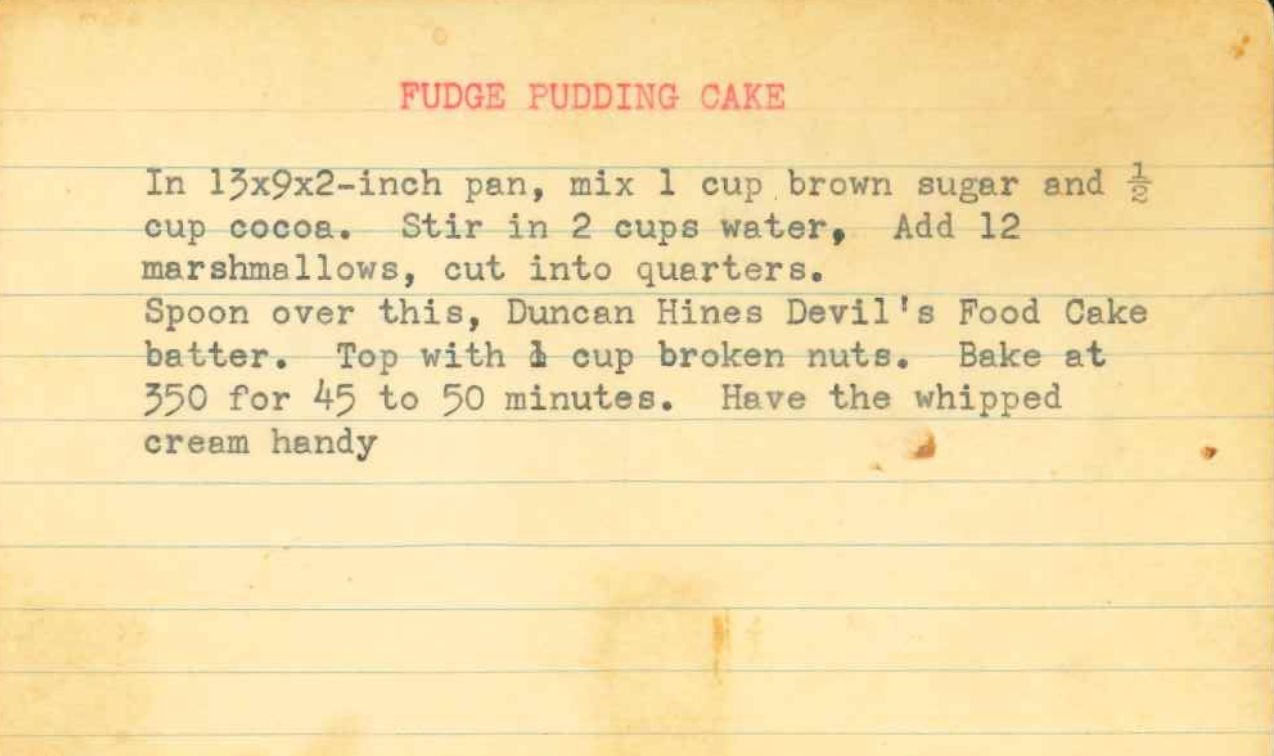 FUDGE PUDDING CAKE
In 13x9x2-inch pan, mix 1 cup brown sugar and ½
cup cocoa. Stir in 2 cups water, Add 12
marshmallows, cut into quarters.
Spoon over this, Duncan Hines Devil's Food Cake
batter. Top with 1 cup broken nuts. Bake at
350 for 45 to 50 minutes. Have the whipped
cream handy